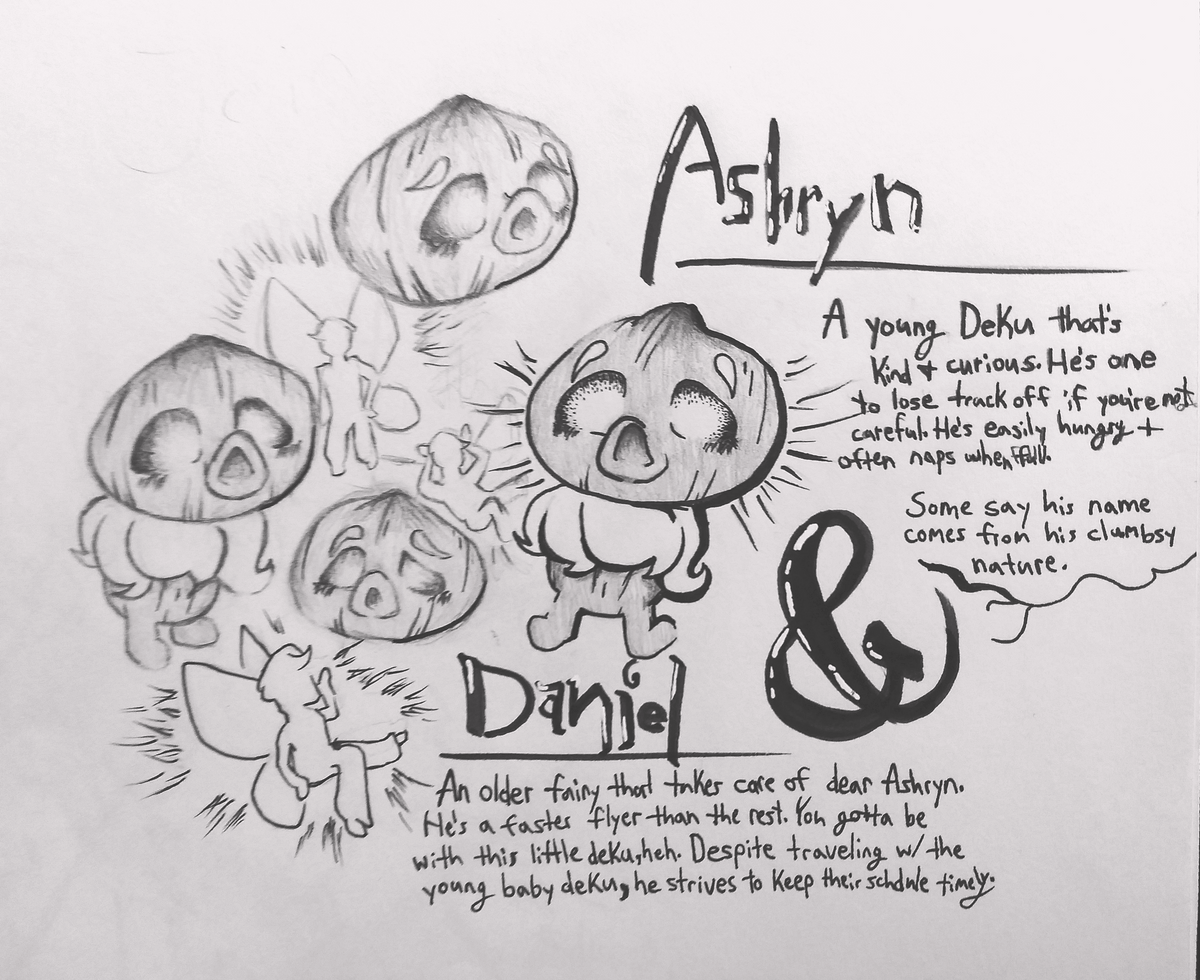 Ashryn
A young Deku that's
Kind + curious. He's one
to lose track off if you're not
careful. He's easily hungry +
often naps when full.
Some say his name
comes from his clumbsy
nature.
&
Daniel
An older fairy that takes care of dear Ashryn.
He's a faster flyer than the rest. You gotta be
with this little deku, heh. Despite traveling w/ the
young baby deku, he strives to keep their schdule timely.